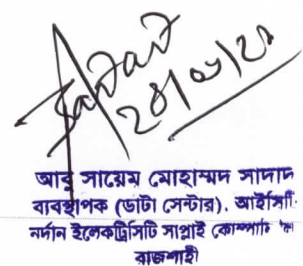 ২৪/০৮/২২
আবু সায়েম মোহাম্মদ সাদাদ
ব্যবস্থাপক (ডাটা সেন্টার), আইসিটি
নর্দান ইলেকট্রিসিটি সাপ্লাই কোম্পানি
রাজশাহী